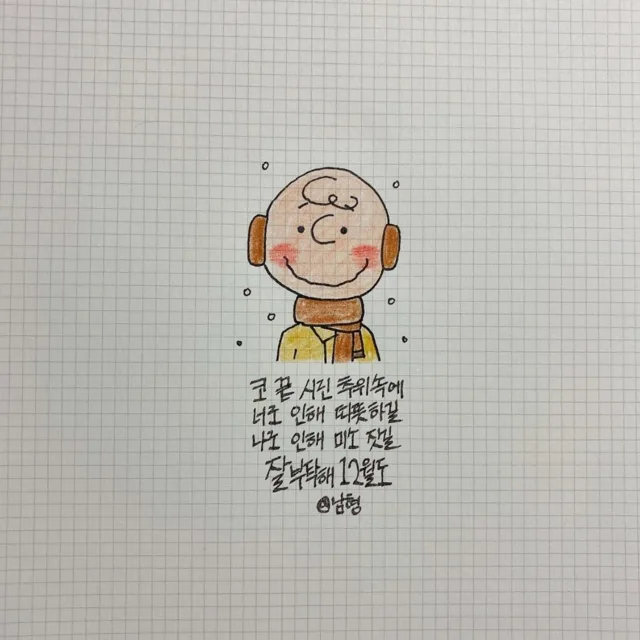 코 끝 시린 추위속에
너로 인해 따뜻하길
나로 인해 미소 짓길
잘 부탁해 12월도
@남형